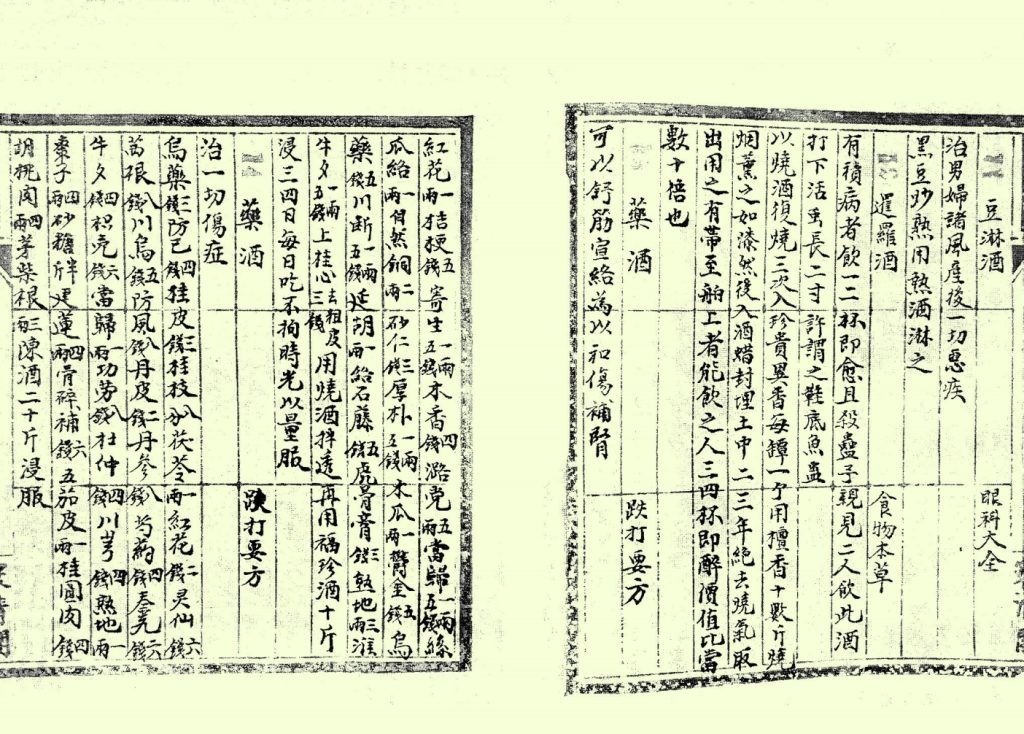 豆淋酒 眼科大全
治男婦諸風産後一切惡疾
黑豆炒熟用熟酒淋之
暹羅酒 食物本草
有積病者飲一二杯即愈且殺蠱予親見二人飲此酒
打下活虫長二寸許謂之鞋底魚蠱
以燒酒復燒三次入珍貴異香每罈一个用檀香十數斤燒
烟薰之如漆然後入酒蜡封埋土中二三年絶去燒氣取
出用之有帶至舶上者能飲之人三四杯即醉價值比當
數十倍也
藥酒 跌打要方
可以舒筋宣絡為以和傷補腎
紅花一兩桔梗五錢寄生一兩五錢木香四錢潞党五兩當歸一兩五錢絲
瓜絡一兩自然銅二兩砂仁三錢厚朴一兩五錢木瓜一兩鬱金五錢烏
藥五錢川断一兩五錢延胡一兩絡石藤五錢虎骨膏三錢熟地三兩淮
牛夕一兩五錢上桂心去粗皮三錢用燒酒拌透再用福珍酒十斤
浸三四日每日吃不拘時光以量服
藥酒 跌打要方
治一切傷症
烏藥三錢防已四錢桂皮三錢桂枝八分茯苓一兩紅花二錢灵仙六錢
葛根八錢川烏五錢防風八錢丹皮二錢丹參八錢芍葯四錢秦艽六錢
牛夕四錢枳壳六錢當歸一兩功劳八錢杜仲四錢川芎四錢熟地一兩
棗子四兩砂糖半斤建蓮四兩骨碎補六錢五茄皮一兩桂圓肉四錢
胡桃肉四兩茅柴根三兩陳酒二十斤浸服